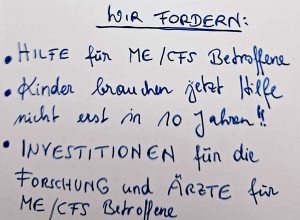 WIR FORDERN:
• HILFE für ME/CFS Betroffene
• Kinder brauchen jetzt Hilfe
nicht erst in 10 Jahren!!
• INVESTITIONEN für die
FORSCHUNG und ÄRZTE für
ME/CFS Betroffene